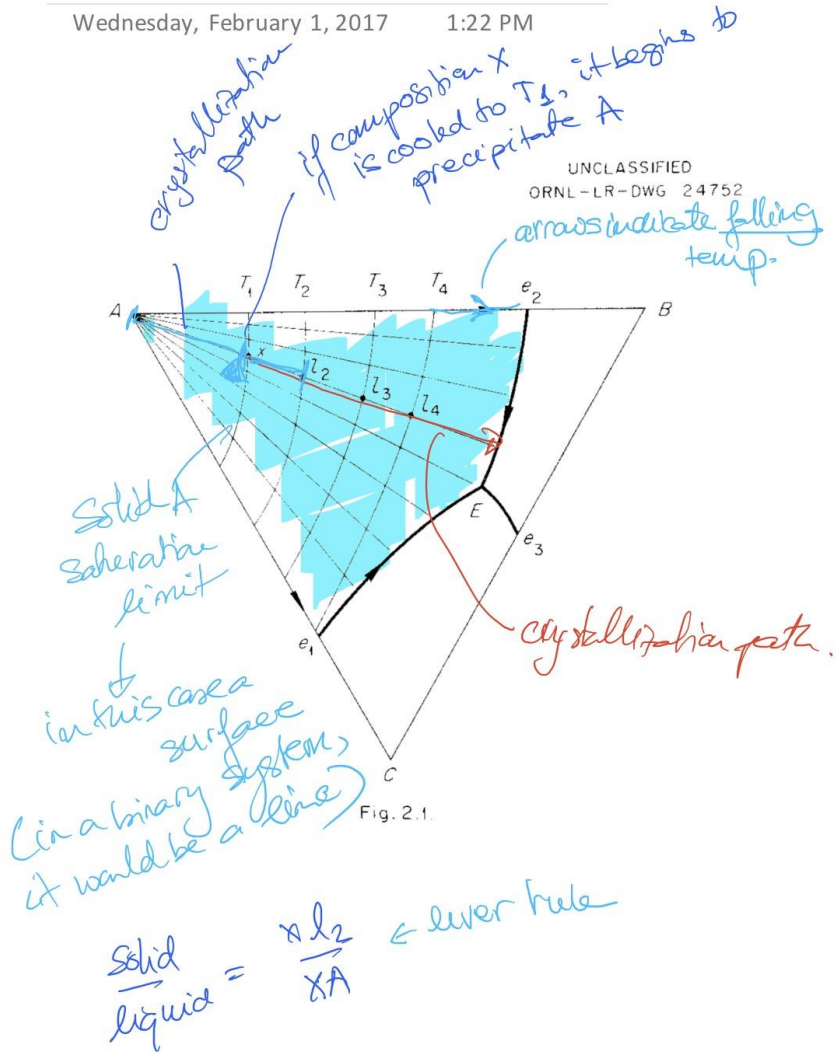 Wednesday, February 1, 2017 1:22 PM
crystallization
path
if composition X
is cooled to T1, it begins to
precipitate A
UNCLASSIFIED
ORNL-LR-DWG 24752
arrows indicate falling
temp.
A T1 T2 T3 T4 e2 B
x l2 l3 l4
E
e3
e1
C
Solid A
saturation
limit
in this case a
surface
(in a binary system,
it would be a line)
crystallization path.
Fig. 2.1.
solid / liquid = x l2 / XA ← lever rule